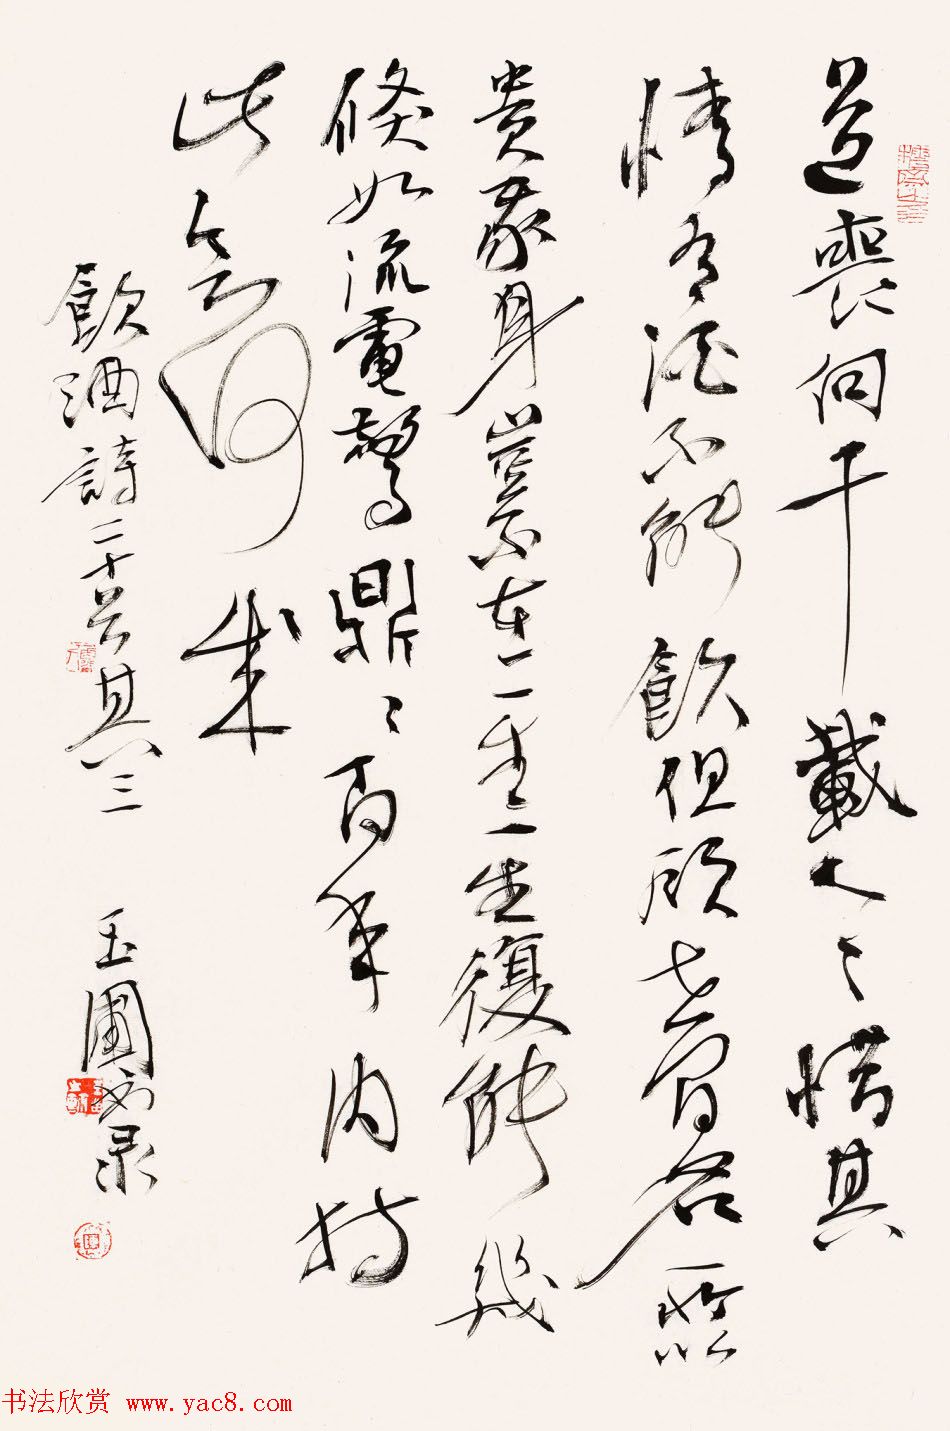 道喪向千載人〻惜其
情有酒不肯飲但顧世間名所以
貴我身豈不在一生一生復能幾
倏如流電驚鼎〻百年內持
此欲何成
飲酒詩二十首其三
玉圃書录
书法欣赏 www.yac8.com